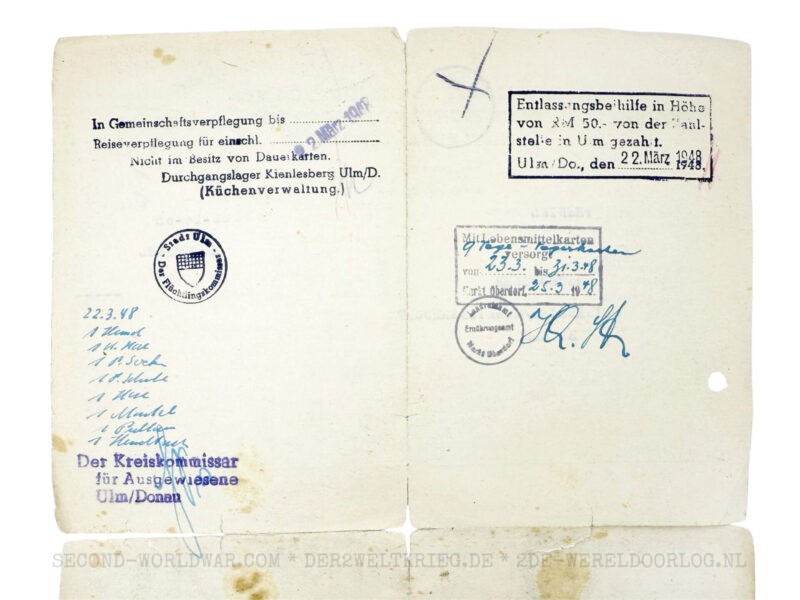 In Gemeinschaftsverpflegung bis
22. März 1948
Reiseverpflegung für einschl.
Nicht im Besitz von Dauerkarten.
Durchgangslager Kienlesberg Ulm/D.
(Küchenverwaltung.)
Stadt Ulm
Der Flüchtlingskommissar
22.3.48
1 Hemd
1 U. Hose
1 P. Socken
1 P. Schuhe
1 Hose
1 Mantel
1 Pullover
1 Handtuch
Der Kreiskommissar
für Ausgewiesene
Ulm/Donau
Entlassungsbeihilfe in Höhe
von RM 50.- von der Zahl-
stelle in Ulm gezahlt.
Ulm/Do., den 22. März 1948 1948.
Mit Lebensmittelkarten
9 Tage - Tageskarten
versorgt
von 23.3. bis 31.3.48
Markt Oberdorf, 25.3 1948
Landratsamt
Ernährungsamt
Markt Oberdorf
SECOND-WORLDWAR.COM * DER2WELTKRIEG.DE * 2DE-WERELDOORLOG.NL